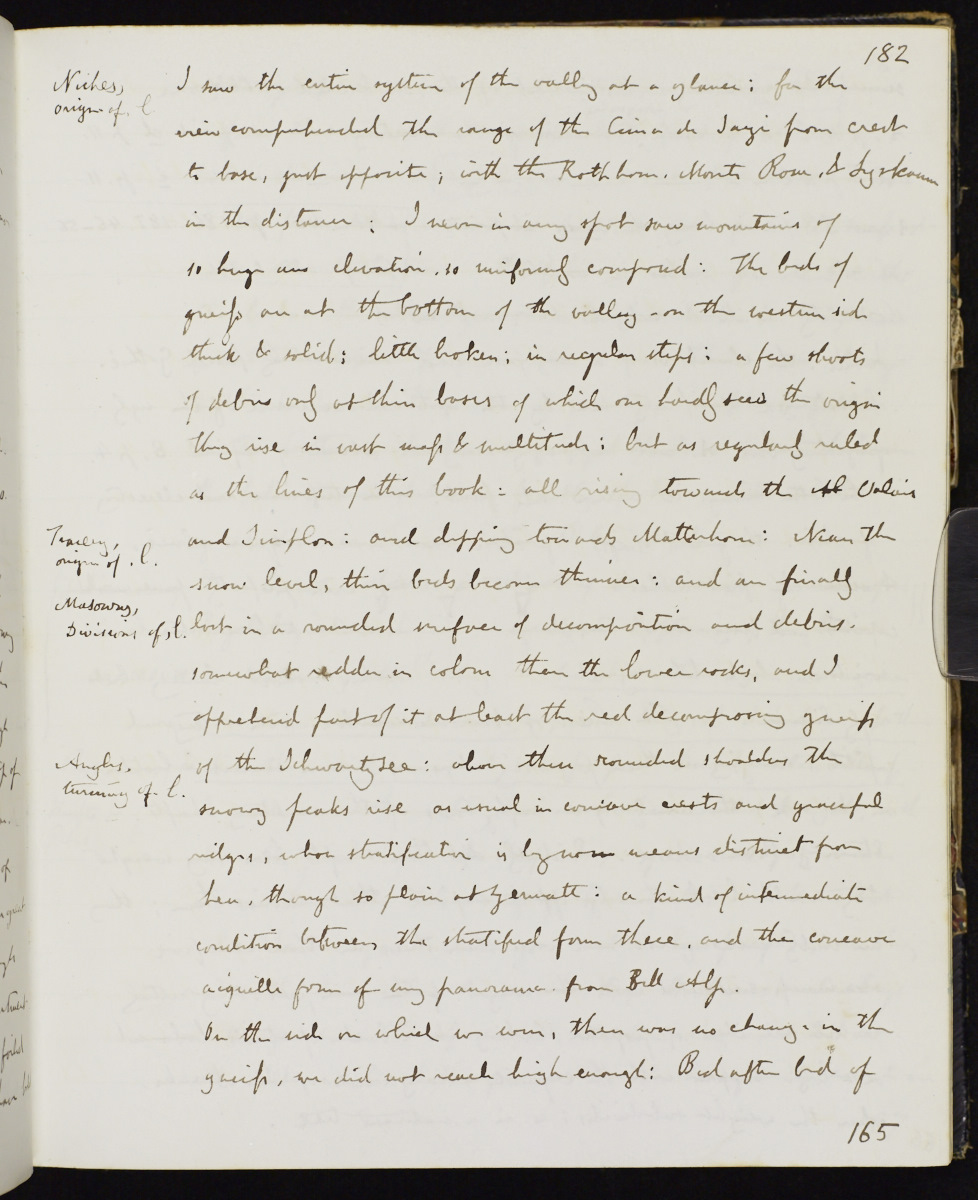 182
Niches,
origin of. l.
I saw the entire system of the valley at a glance: for the
view comprehended the range of the Cima de Jazi from crest
to base, just opposite; with the Rothhorn. Monte Rosa, & Lyskamm
in the distance: I never in any spot saw mountains of
so huge an elevation, so uniformly composed: The beds of
gneiss are at the bottom of the valley - on the western side
thick & solid; little broken; in regular steps: a few shoots
of debris only at their bases of which one hardly sees the origin
they rise in vast mass & multitude; but as regularly ruled
as the lines of this book: all rising towards the Valais
Tracery,
origin of. l.
and Simplon: and dipping towards Matterhorn: Near the
snow level, their beds become thinner: and are finally
Masonry,
Divisions of, l.
lost in a rounded surface of decomposition and debris.
somewhat redder in colour than the lower rocks, and I
apprehend part of it at least the red decomposing gneiss
Angles,
turning of. l.
of the Schwartzsee: above these rounded shoulders the
snowy peaks rise as usual in concave crests and graceful
ridges, whose stratification is by no means distinct from
here, though so plain at Zermatt: a kind of intermediate
condition between the stratified form there, and the concave
aiguille form of my panorama from Bell Alp.
On the side on which we were, there was no change in the
gneiss, we did not reach high enough: Bed after bed of
165